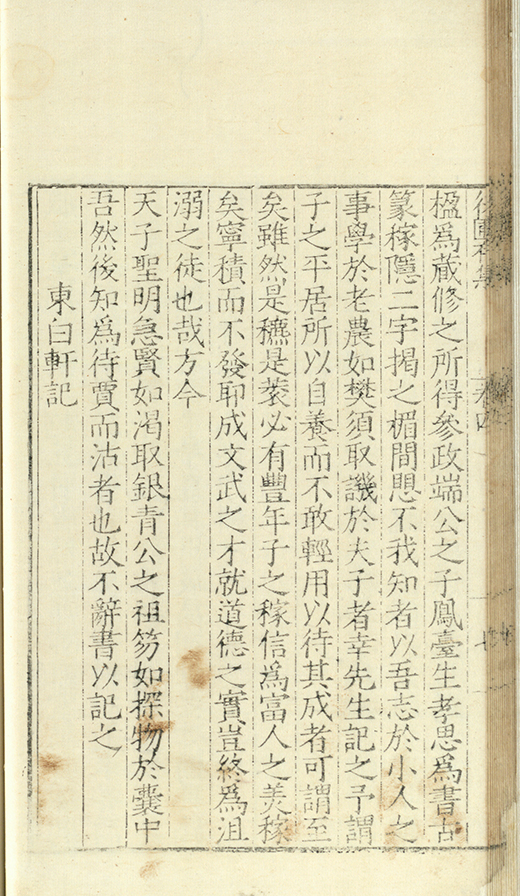 卷四
楹為藏修之所得參政端公之子鳳臺生孝思為書古
篆稼隱二字揭之楣間愳不我知者以吾志於小人之
事學於老農如樊須取譏於夫子者幸先生記之予謂
子之平居所以自養而不敢輕用以待其成者可謂至
矣雖然是穮是蔉必有豐年子之稼信為富人之羙稼
矣寧積而不發耶成文武之才就道德之實豈終為沮
溺之徒也哉方今
天子聖明急賢如渴取銀青公之祖笏如探物於囊中
吾然後知為待賈而沽者也故不辭書以記之
東白軒記